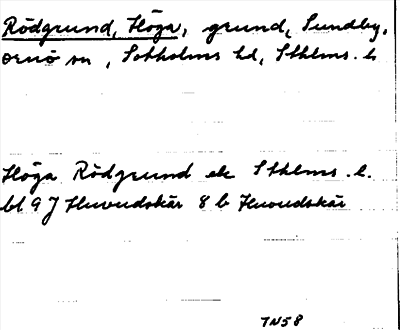 Rödgrund, Höga, grund, Sundby,
Ornö sn, Sotholms hd, Sthlms. l.
Höga Rödgrund ek Sthlms. l.
bl 9 J Huvudskär 8 b Huvudskär
7N58